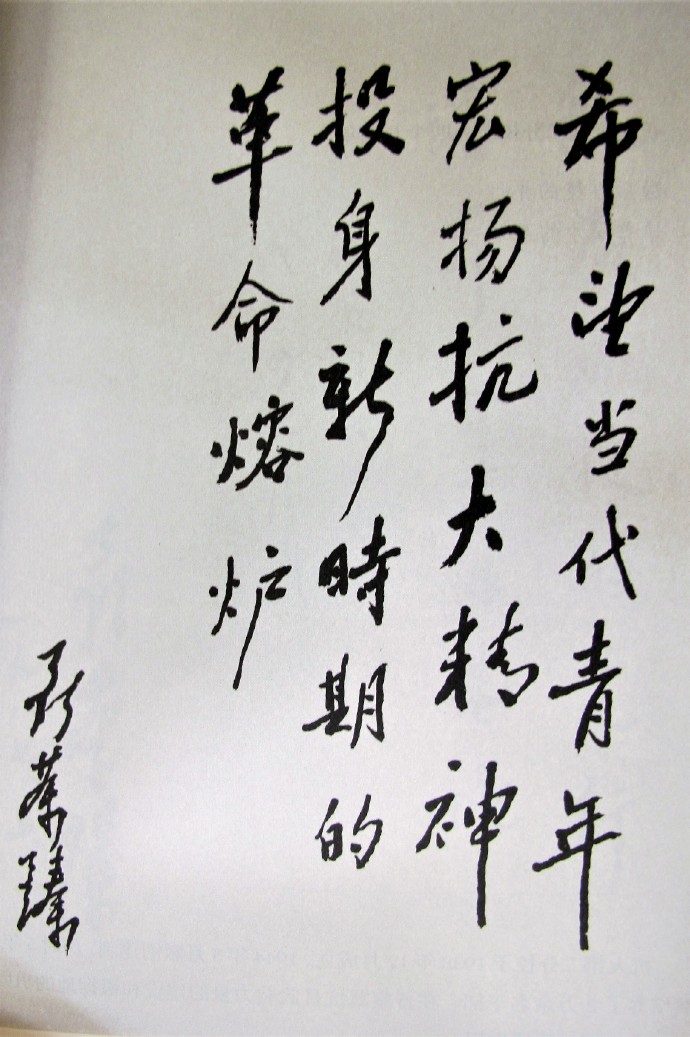 希望当代青年
宏扬抗大精神
投身新時期的
革命熔炉
聂荣臻